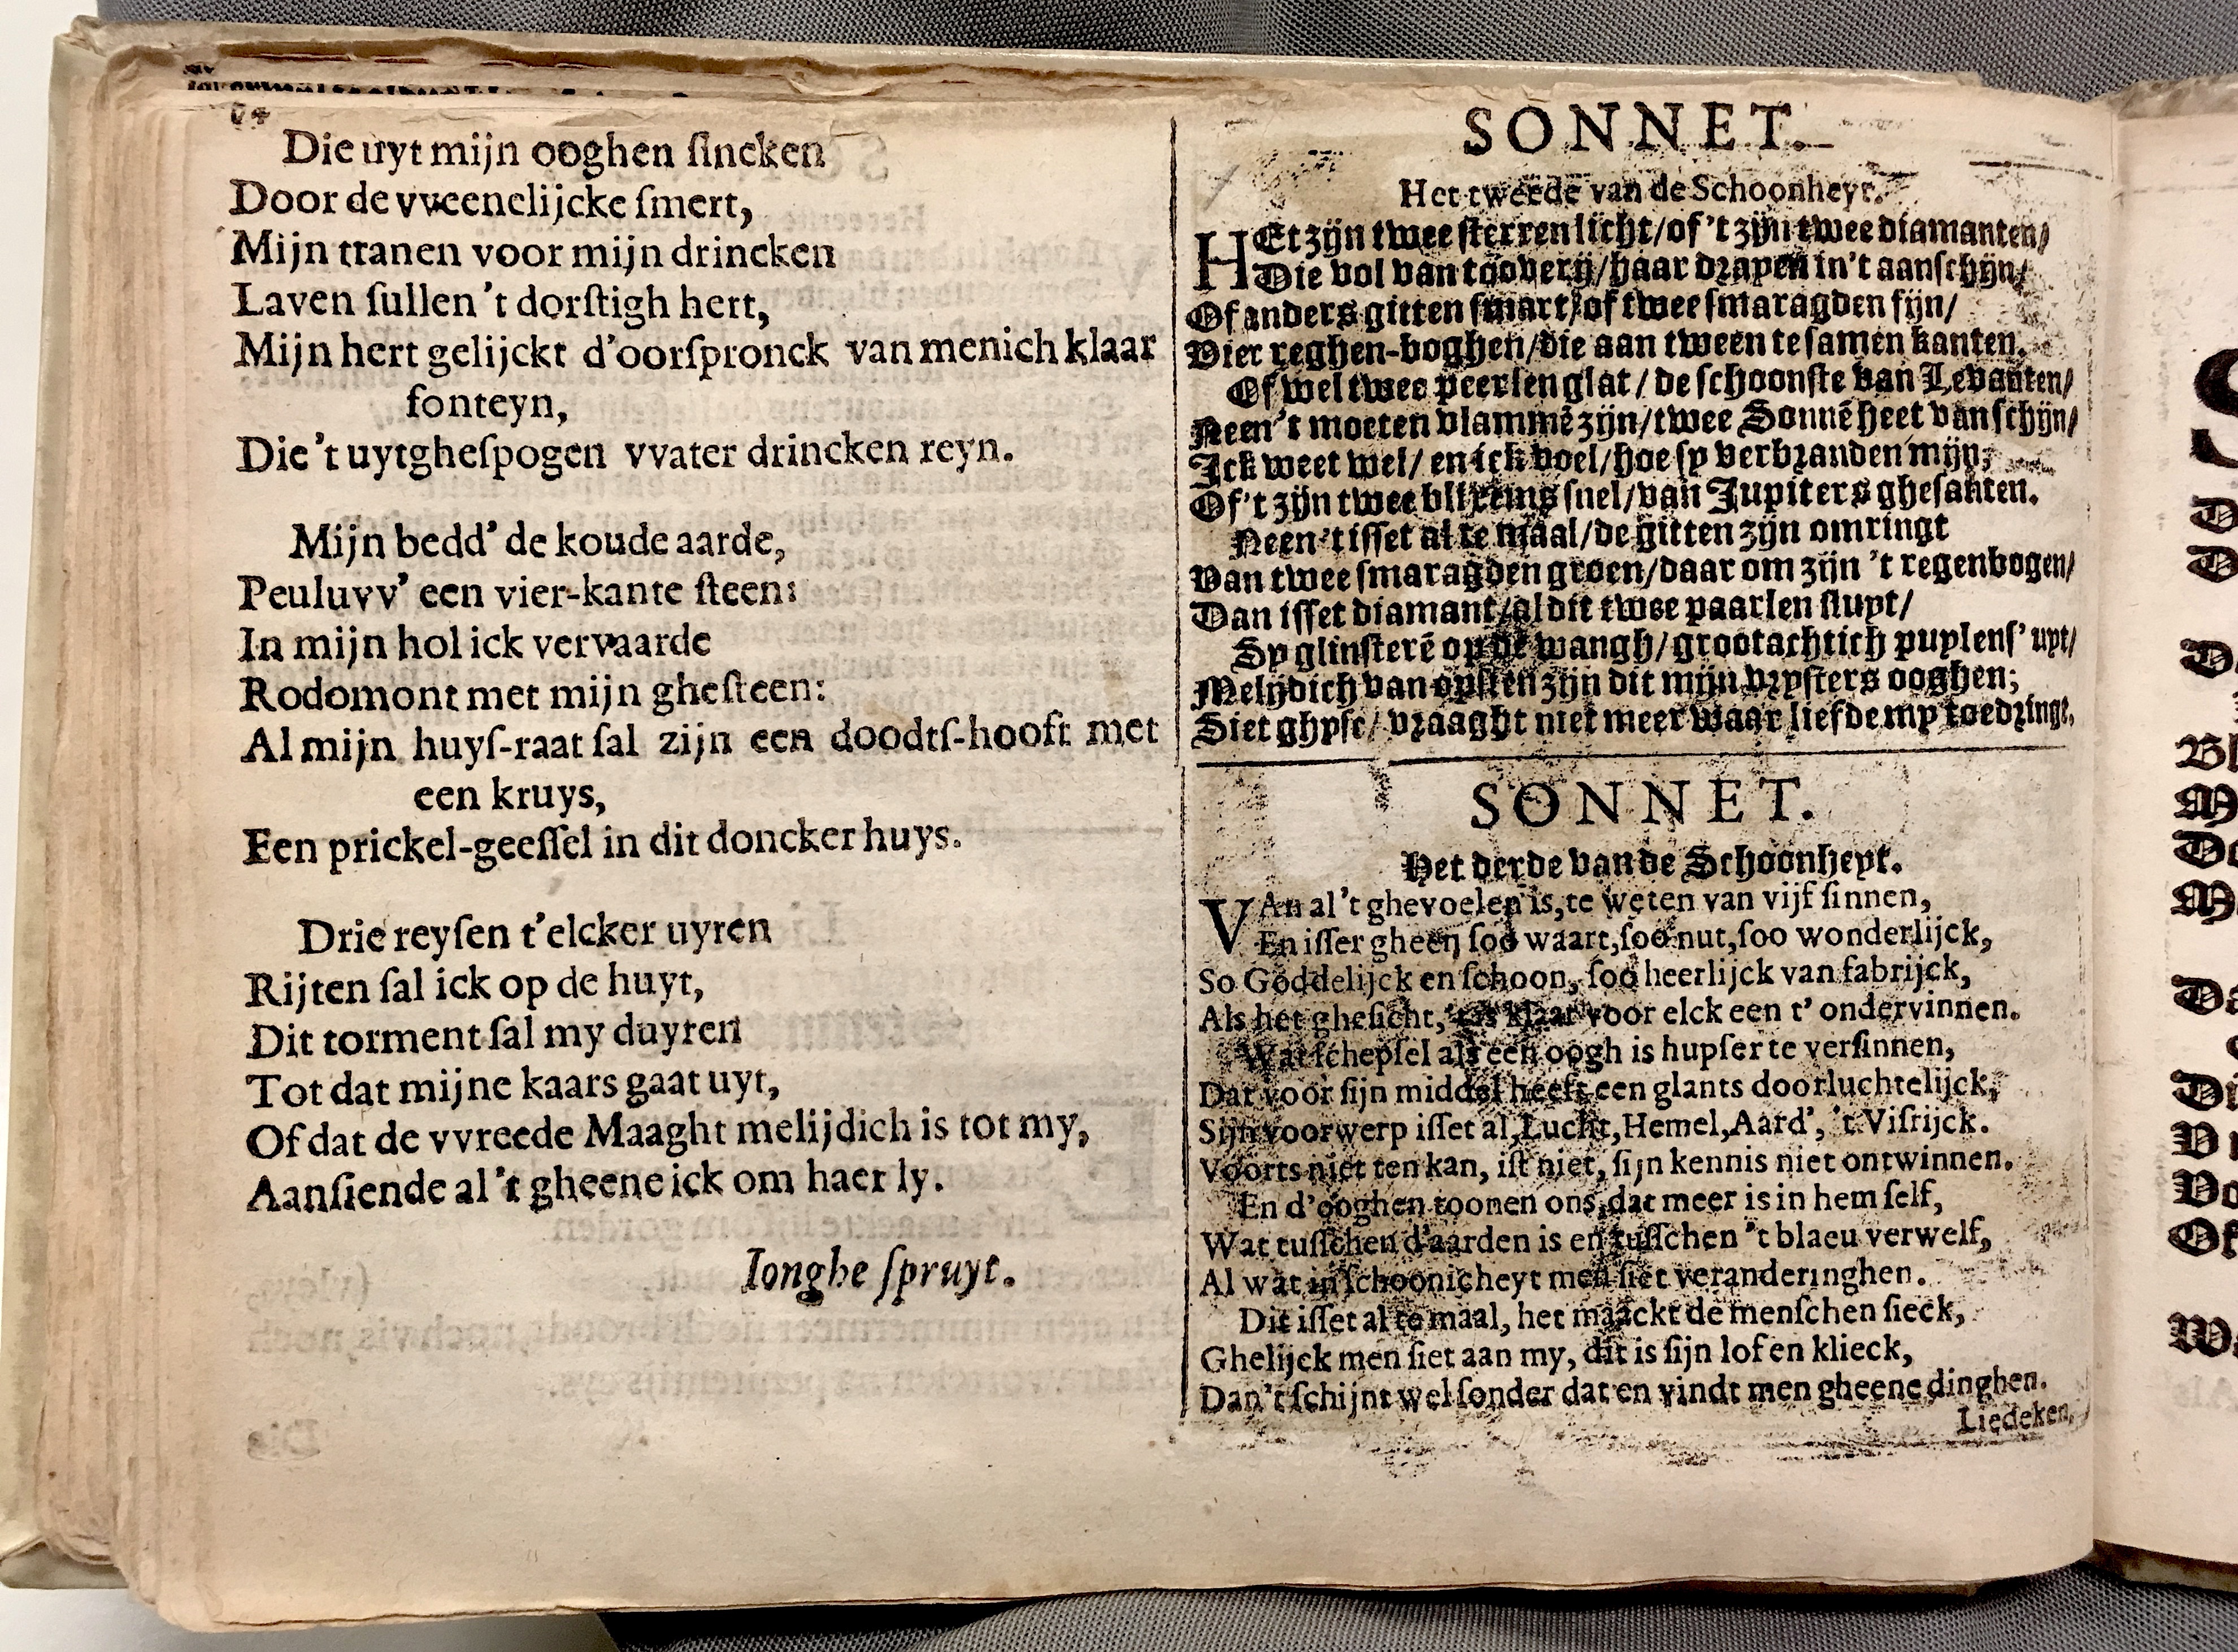 Die uyt mijn ooghen ſincken
Door de vveenelijcke ſmert,
Mijn tranen voor mijn drincken
Laven ſullen 't dorſtigh hert,
Mijn hert gelijckt d'oorſpronck van menich klaar
fonteyn,
Die 't uytgheſpogen vvater drincken reyn.
Mijn bedd' de koude aarde,
Peuluvv' een vier-kante ſteen:
In mijn hol ick vervaarde
Rodomont met mijn gheſteen:
Al mijn huyſ-raat ſal zijn een doodtſ-hooft met
een kruys,
Een prickel-geeſſel in dit doncker huys.
Drie reyſen t'elcker uyren
Rijten ſal ick op de huyt,
Dit torment ſal my duyren
Tot dat mijne kaars gaat uyt,
Of dat de vvreede Maaght melijdich is tot my,
Aanſiende al 't gheene ick om haer ly.
Ionghe ſpruyt.
SONNET.
Het tweede van de Schoonheyt.
HEt zijn twee ſterren licht/of 't zijn twee diamanten/
Die vol van toovery/haar drayen in't aanſchijn/
Of anders gitten ſwart/of twee ſmaragden fijn/
Vier reghen-boghen/die aan tween te ſamen kanten.
Of wel twee peerlen glat/de ſchoonſte van Levanten/
Neen 't moeten vlammē zijn/twee Sonnē heet van ſchijn/
Ick weet wel/en ick voel/hoe ſy verbranden mijn;
Of 't zijn twee blixems ſnel/van Jupiters gheſanten.
Neen 't iſſet al te maal/de gitten zijn omringt
Van twee ſmaragden groen/daar om zijn 't regenbogen/
Dan iſſet diamant/al dit twee paarlen ſluyt/
Sy glinſterē op de wangh/grootachtich puylenſ' uyt/
Melijdich van opſien zijn dit mijn vryſters ooghen;
Siet ghyſe/vraaght niet meer waar liefde my toedringt.
SONNET.
Het derde van de Schoonheyt.
VAn al 't ghevoelen is, te weten van vijf ſinnen,
En iſſer gheen ſoo waart, ſoo nut, ſoo wonderlijck,
So Goddelijck en ſchoon, ſoo heerlijck van fabrijck,
Als het gheſicht, 't is klaar voor elck een t' ondervinnen.
Wat ſchepſel als een oogh is hupſer te verſinnen,
Dat voor ſijn middel heeft een glants doorluchtelijck,
Sijn voorwerp iſſet al, Lucht, Hemel, Aard', 't Viſrijck.
Voorts niet ten kan, iſt niet, ſijn kennis niet ontwinnen.
En d'ooghen toonen ons, dat meer is in hem ſelf,
Wat tuſſchen d'aarden is en tuſſchen 't blaeu verwelf,
Al wat in ſchoonicheyt men ſiet veranderinghen.
Dit iſſet al te maal, het maackt de menſchen ſieck,
Ghelijck men ſiet aan my, dit is ſijn lof en klieck,
Dan 't ſchijnt wel ſonder dat en vindt men gheene dinghen.
Liedeken,